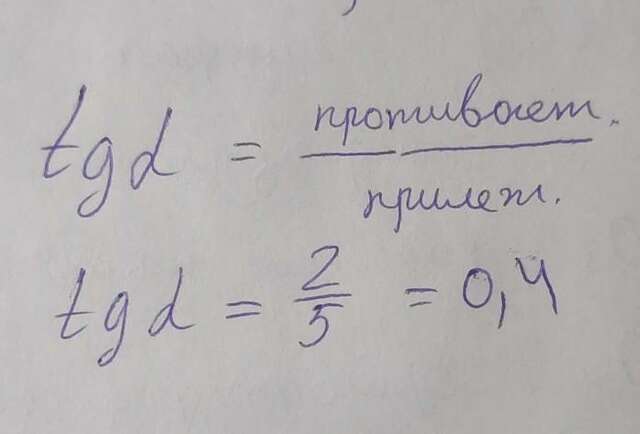 tg α = противолеж. / прилеж.
tg α = 2/5 = 0,4